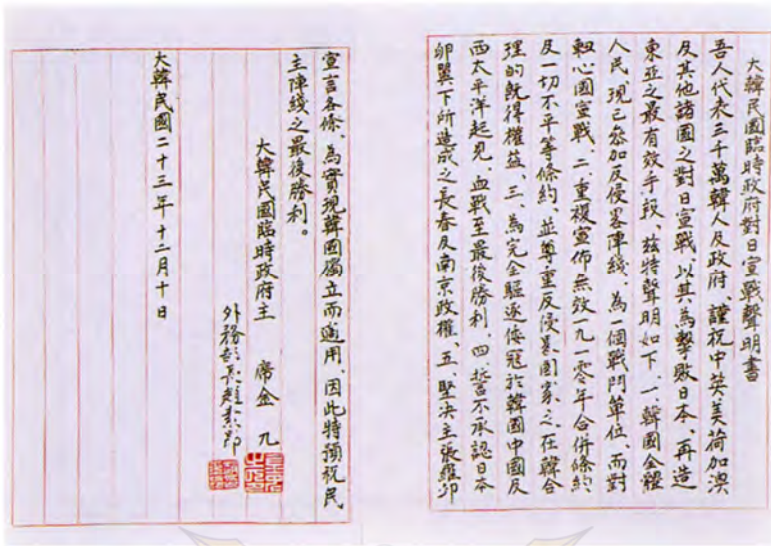 大韓民國臨時政府對日宣戰聲明書
吾人代表三千萬韓人及政府、謹祝中英美荷加澳
及其他諸國之對日宣戰、以其為擊敗日本、再造
東亞之最有效手段、玆特聲明如下、一、韓國全體
人民現已參加反侵畧陣綫、為一個戰鬥單位、而對
軸心國宣戰、二、重複宣佈無效一九一零年合併條約
及一切不平等條約、並尊重反侵畧國家之、在韓合
理的旣得權益、三、為完全驅逐倭寇於韓國中國及
西太平洋起見、血戰至最後勝利、四、誓不承認日本
卵翼下所造成之長春及南京政權、五、堅決主張羅卯
宣言各條、為實現韓國獨立而適用、因此特預祝民
主陣綫之最後勝利。
大韓民國臨時政府主 席金 九
外務部長趙素昻
大韓民國二十三年十二月十日